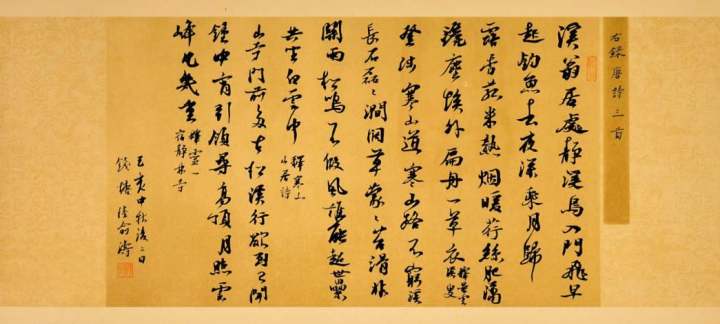 右錄唐詩三首
溪翁居處靜溪鳥入門飛早
起釣魚去夜深乘月歸
露香菰米熟烟暖荇絲肥瀟
灑塵埃外扁舟一草衣 釋景雲
溪叟
登陟寒山道寒山路不窮溪
長石磊〻澗闊草蒙〻苔滑非
關雨松鳴不假風誰能超世累
共坐白雲中 釋寒山
山居詩
山寺門前多古松溪行欲到已聞
鐘中宵引領尋高頂月照雲
峰凡幾重 釋靈一
宿靜林寺
己亥中秋後二日
錢塘 俞濤